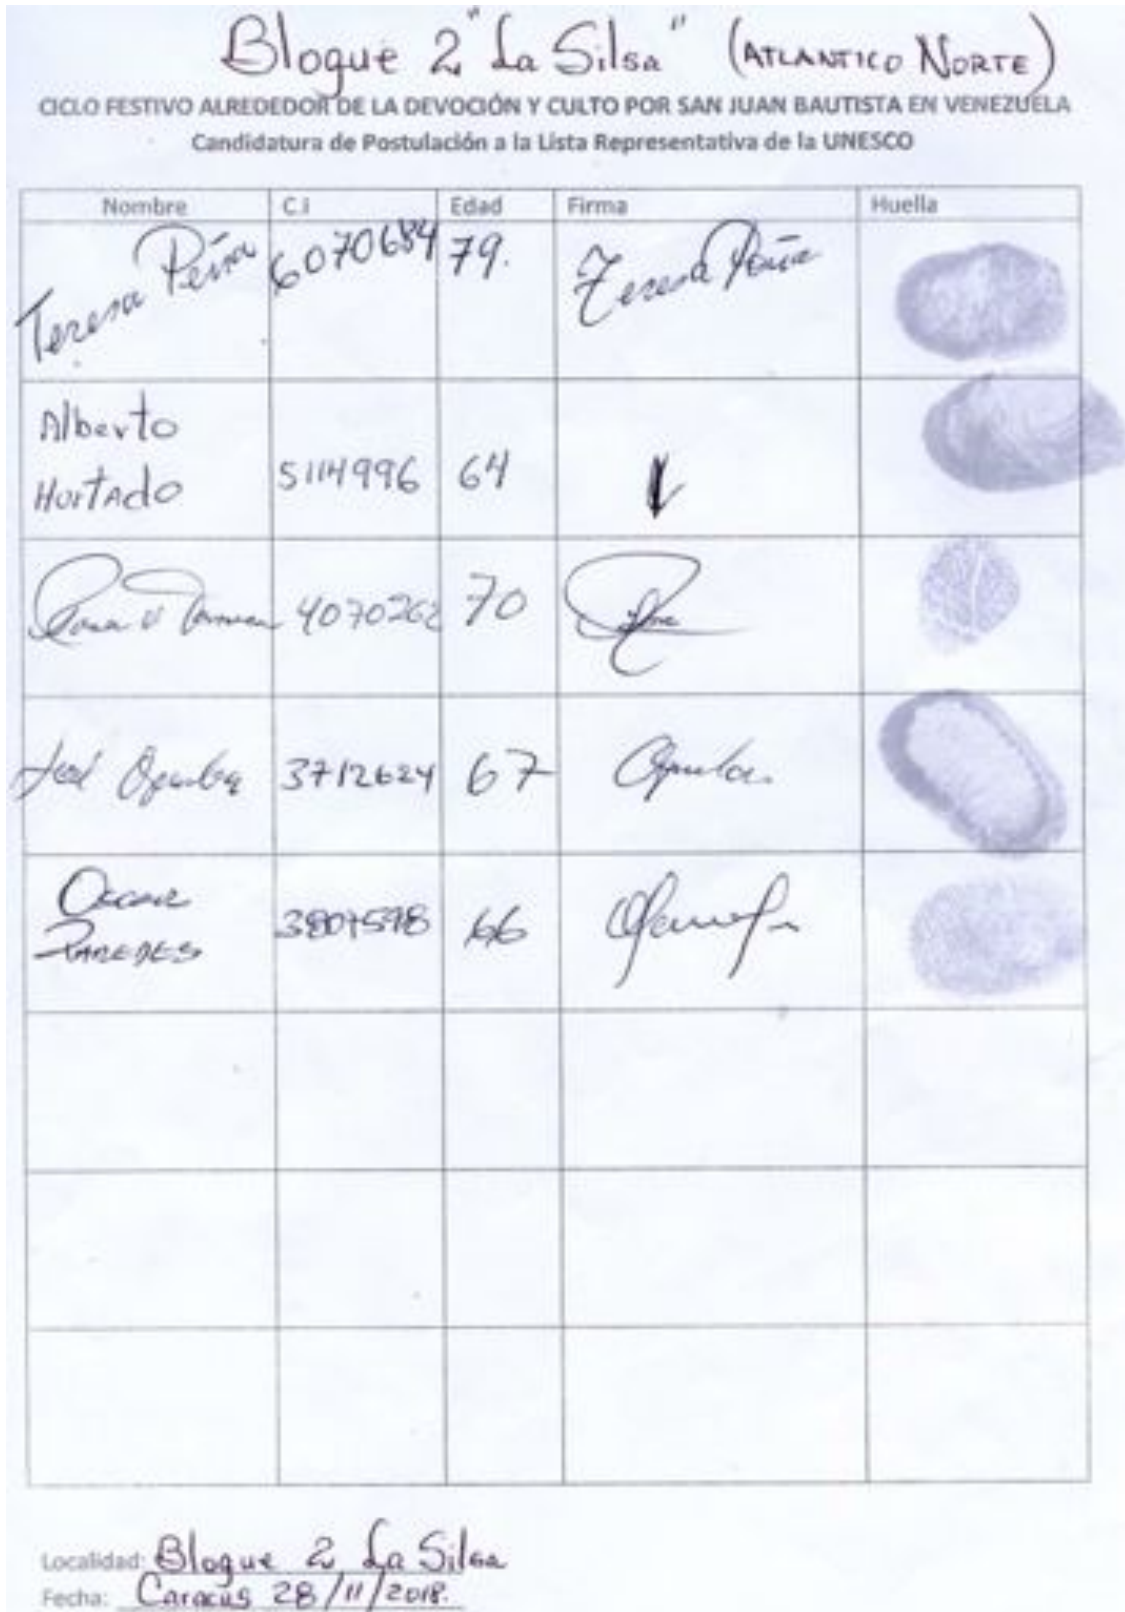 Bloque 2 "La Silsa" (ATLANTICO NORTE)
CICLO FESTIVO ALREDEDOR DE LA DEVOCIÓN Y CULTO POR SAN JUAN BAUTISTA EN VENEZUELA
Candidatura de Postulación a la Lista Representativa de la UNESCO
Nombre C.i Edad Firma Huella
Teresa Peña 6070684 79. Teresa Peña
Alberto
Hurtado 5114996 64
4070262 70
3712624 67
Oscar
PAREDES 3807598 66
Localidad: Bloque 2 La Silsa
Fecha: Caracas 28/11/2018.